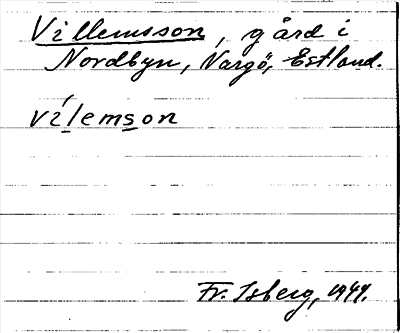 Villemsson, gård i
Nordbyn, Nargö, Estland.
vílemson
Fr. Isberg, 1949.